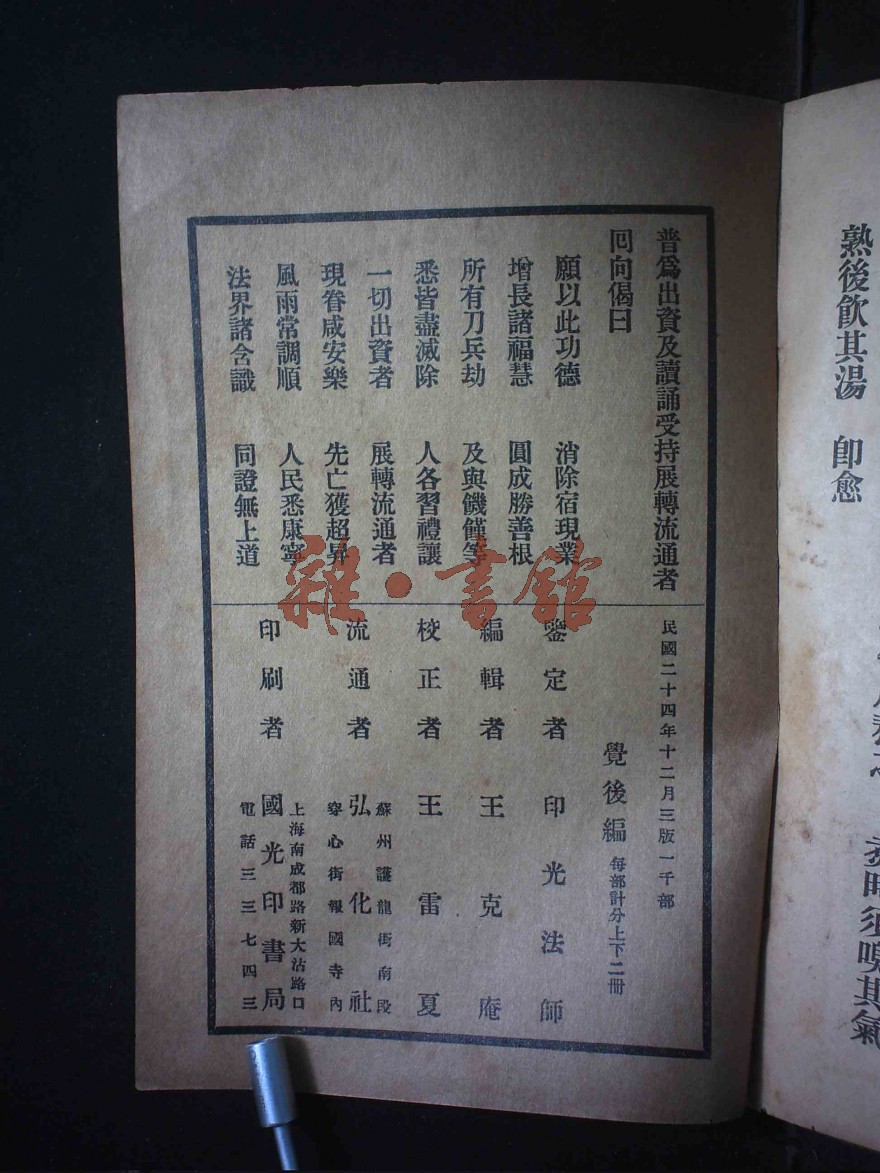 普爲出資及讀誦受持展轉流通者
囘向偈曰
願以此功德　消除宿現業
增長諸福慧　圓成勝善根
所有刀兵劫　及與饑饉等
悉皆盡滅除　人各習禮讓
一切出資者　展轉流通者
現眷咸安樂　先亡獲超昇
風雨常調順　人民悉康寧
法界諸含識　同證無上道
民國二十四年十二月三版一千部
覺後編　每部計分上下二册
鑒定者　印光法師
編輯者　王克庵
校正者　王雷夏
流通者　弘化社
蘇州護龍街南段
穿心街報國寺內
印刷者　國光印書局
上海南成都路新大沽路口
電話三三七四三
雜·書館
熟後飲其湯　卽愈
煑時須嗅其氣